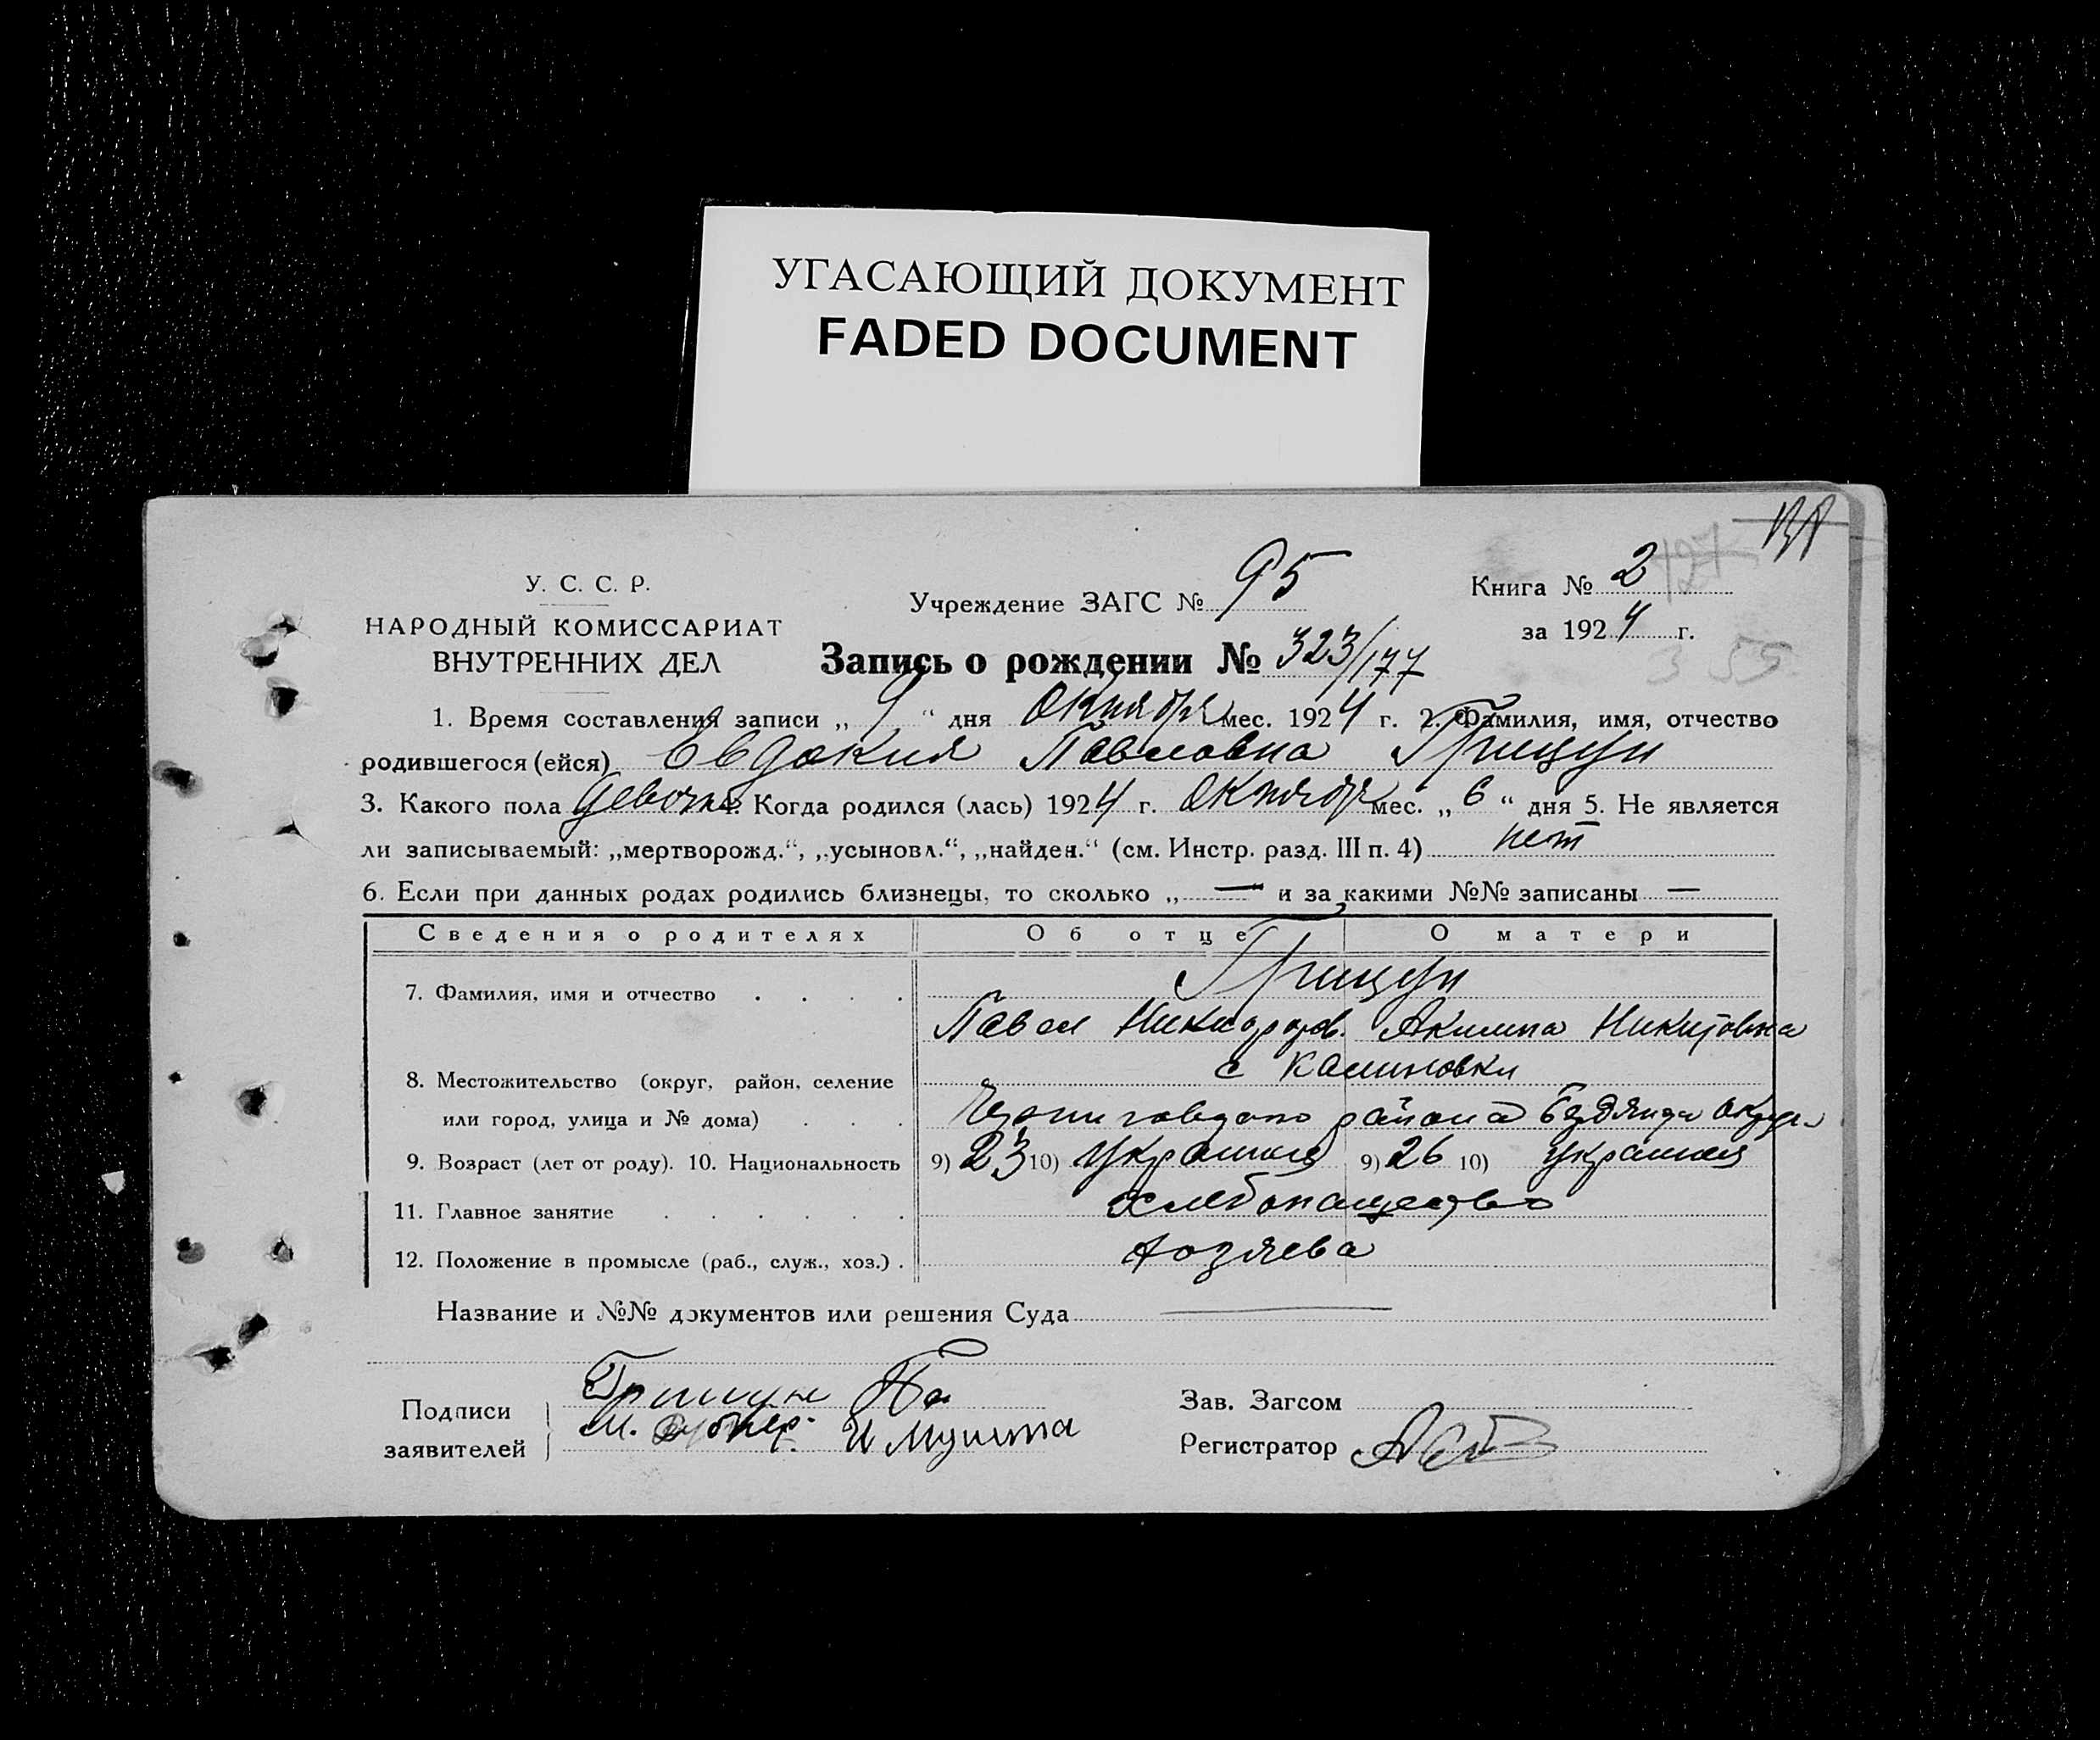 УГАСАЮЩИЙ ДОКУМЕНТ
FADED DOCUMENT
У. С. С. Р.
НАРОДНЫЙ КОМИССАРИАТ
ВНУТРЕННИХ ДЕЛ
Учреждение ЗАГС № 95
Книга № 2
127
за 1924 г.
3 55
Запись о рождении № 323/177
1. Время составления записи „ 9 “ дня Октября мес. 1924 г. 2. Фамилия, имя, отчество
родившегося (ейся) Евдокия Павловна Грицун
3. Какого пола девочка 4. Когда родился (лась) 1924 г. Октября мес. „ 6 “ дня 5. Не является
ли записываемый: „мертворожд.“, „усыновл.“, „найден.“ (см. Инстр. разд. III п. 4) нет
6. Если при данных родах родились близнецы, то сколько „ — “ и за какими №№ записаны —
Сведения о родителях Об отце О матери
7. Фамилия, имя и отчество . . . . Грицун
Павел Никифоров. Акилина Никитовна
8. Местожительство (округ, район, селение с Калиновки
или город, улица и № дома) . . . района
9. Возраст (лет от роду). 10. Национальность 9) 23 10) Украинец 9) 26 10) Украинка
11. Главное занятие . . . . . . хлебопашество
12. Положение в промысле (раб., служ., хоз.) . хозяева
Название и №№ документов или решения Суда
Подписи
заявителей
Грицун Па
И
Зав. Загсом
Регистратор